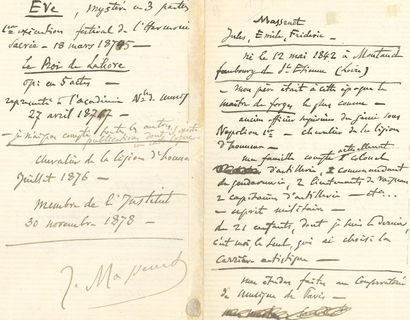 EVE, mystère en 3 parties
1ère exécution festival de l'Harmonie
Sacrée - 18 mars 1875
le Roi de Lahore
op: en 5 actes
représenté à l'académie Nle de musiq
27 avril 1877
- je n'ai pas compté toutes les autres
publications
chevalier de la légion d'honneur
Juillet 1876 -
membre de l'Institut
30 novembre 1878 -
J. Massenet
Massenet
Jules, Emile, Frédéric -
né le 12 mai 1842 à Montaud
faubourg de St Etienne (Loire)
- Mon père était à cette époque
maître de forges
ancien officier supérieur du génie sous
Napoléon 1er - chevalier de la légion
d'honneur -
ma famille compte actuellement 1 colonel
d'artillerie, 2 commandants
de gendarmerie, 2 lieutenants de vaisseau
2 capitaines d'artillerie - etc..
- esprit militaire -
de 21 enfants, dont je suis le dernier,
c'est moi le seul, qui ai choisi la
carrière artistique -
mes études faites au Conservatoire
de musique de Paris -